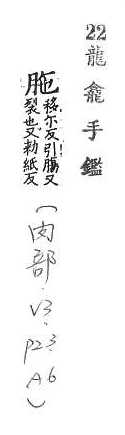 22龍龕手鑑
胣移尔反引腸又
裂也又勑紙反
(肉部.V3.P23.A6)